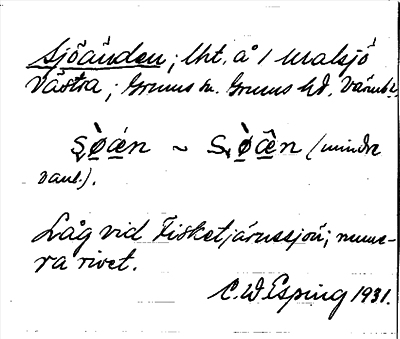 Sjöänden; lht. å 1 Malsjö
Västra; Grums sn. Grums hd. Värml.
sø̀æ̀n ~ sø̀æ̂n (mindre
vanl.).
Låg vid Fisketjärnssjön; nume-
ra rivet.
C. W. Esping 1931.